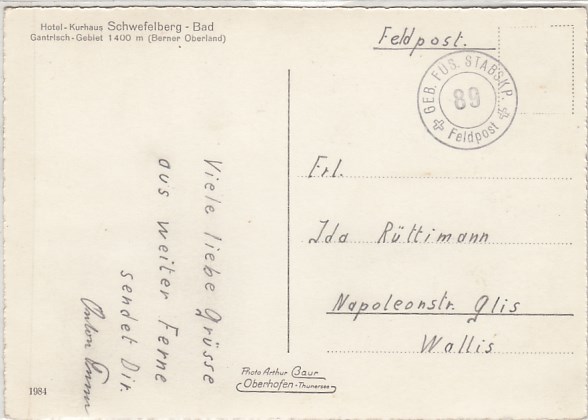 Hotel-Kurhaus Schwefelberg-Bad
Gantrisch-Gebiet 1400 m (Berner Oberland)
Feldpost.
GEB. FÜS. STABSKP.
89
Feldpost
Viele liebe Grüsse
aus weiter Ferne
sendet Dir.
Anton
Frl.
Ida Rüttimann
Napoleonstr. Glis
Wallis
Photo Arthur Baur
Oberhofen-Thunersee
1984